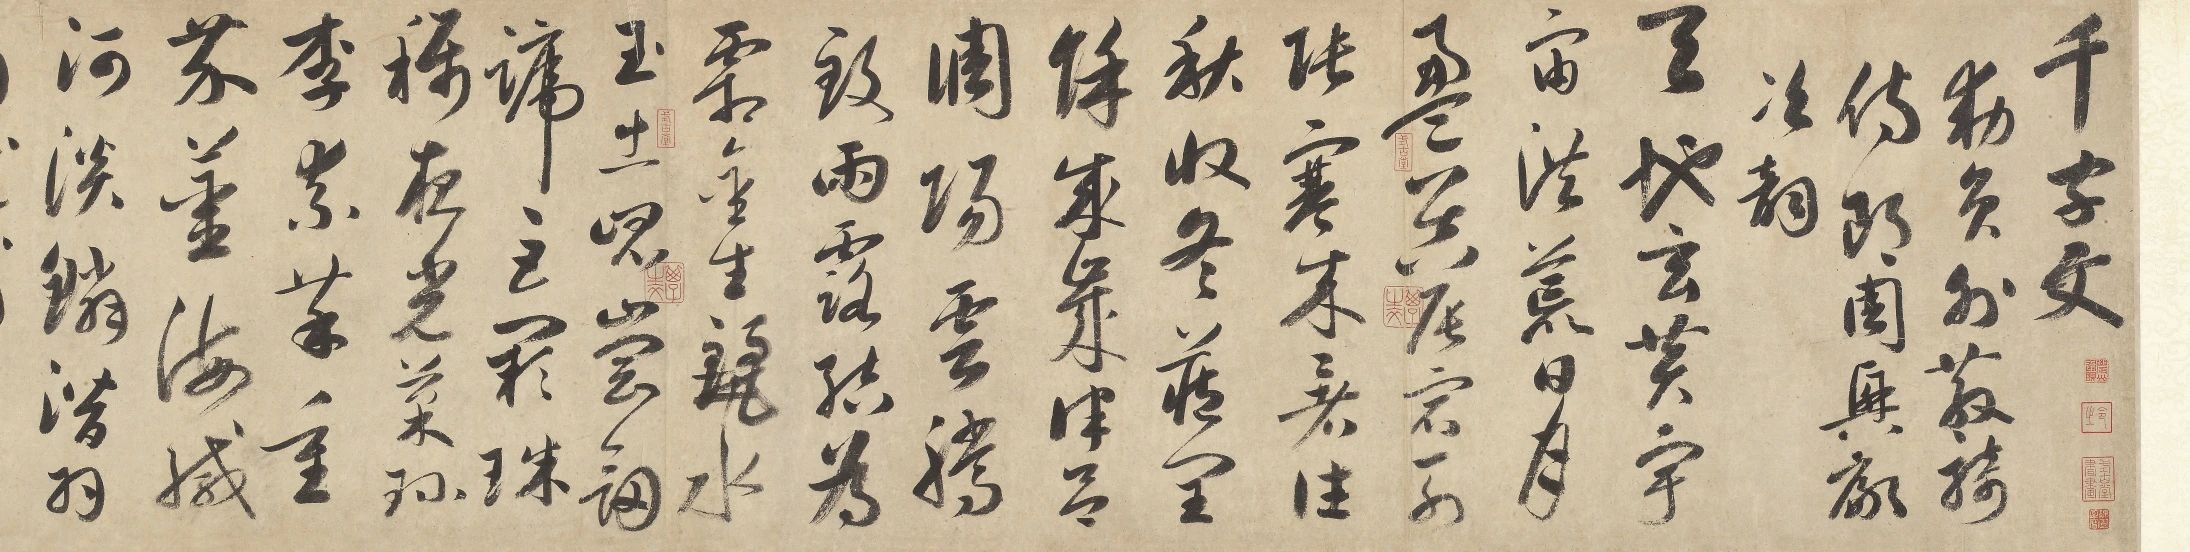 千字文
敕員外散騎
侍郎周興嗣
次韻
天地玄黄宇
宙洪荒日月
盈昃辰宿列
張寒來暑往
秋收冬藏閏
餘成歲律吕
調陽雲騰
致雨露結為
霜金生麗水
玉出崑崗劒
號巨闕珠
稱夜光菓珎
李柰菜重
芥薑海鹹
河淡鱗潛羽